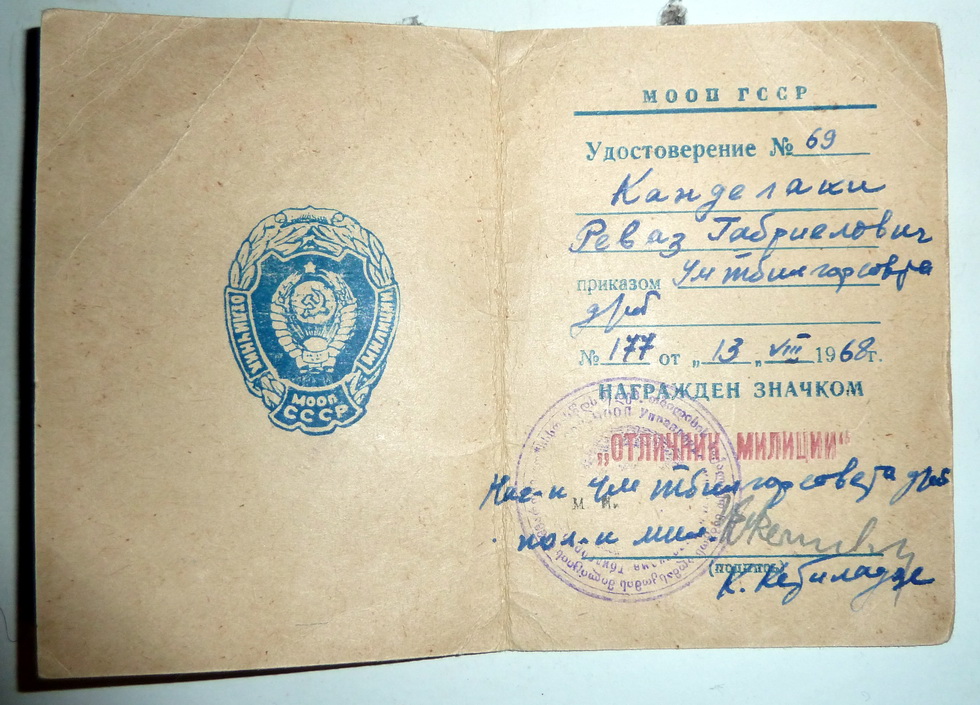 ОТЛИЧНИК
МИЛИЦИИ
МООП
СССР
МООП ГССР
Удостоверение № 69
Канделаки
Реваз Габриелович
приказом Ум тбилгорсовета
№ 177 от „13„ VIII 1968г.
НАГРАЖДЕН ЗНАЧКОМ
„ОТЛИЧНИК МИЛИЦИИ“
Нач-к Ум тбилгорсовета
М П.
пол-к мил.
(подпись)
К. Кебиладзе